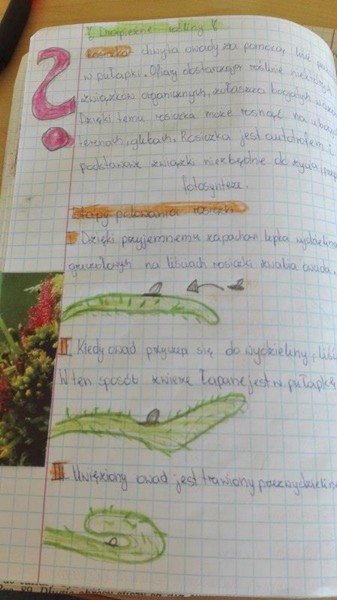 ? Drapieżne rośliny ?
Rosiczka chwyta owady za pomocą liści
w pułapki. Ofiary dostarczają roślinie niektórych
związków organicznych, zwłaszcza bogatych w
Dzięki temu rosiczka może rosnąć na ubogich
glebach. Rosiczka jest autotrofem i
podstawowe związki niezbędne do życia
fotosynteza.
Etapy polowania rosiczki
I Dzięki przyjemnemu zapachowi lepka wydzielina
gruczołowych na liściach rosiczki zwabia owada
II Kiedy owad przyklei się do wydzieliny, liść
W ten sposób zwierzę łapane jest w pułapkę
III Uwięziony owad jest trawiony przez wydzielinę